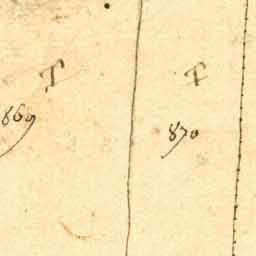 T T
869 870